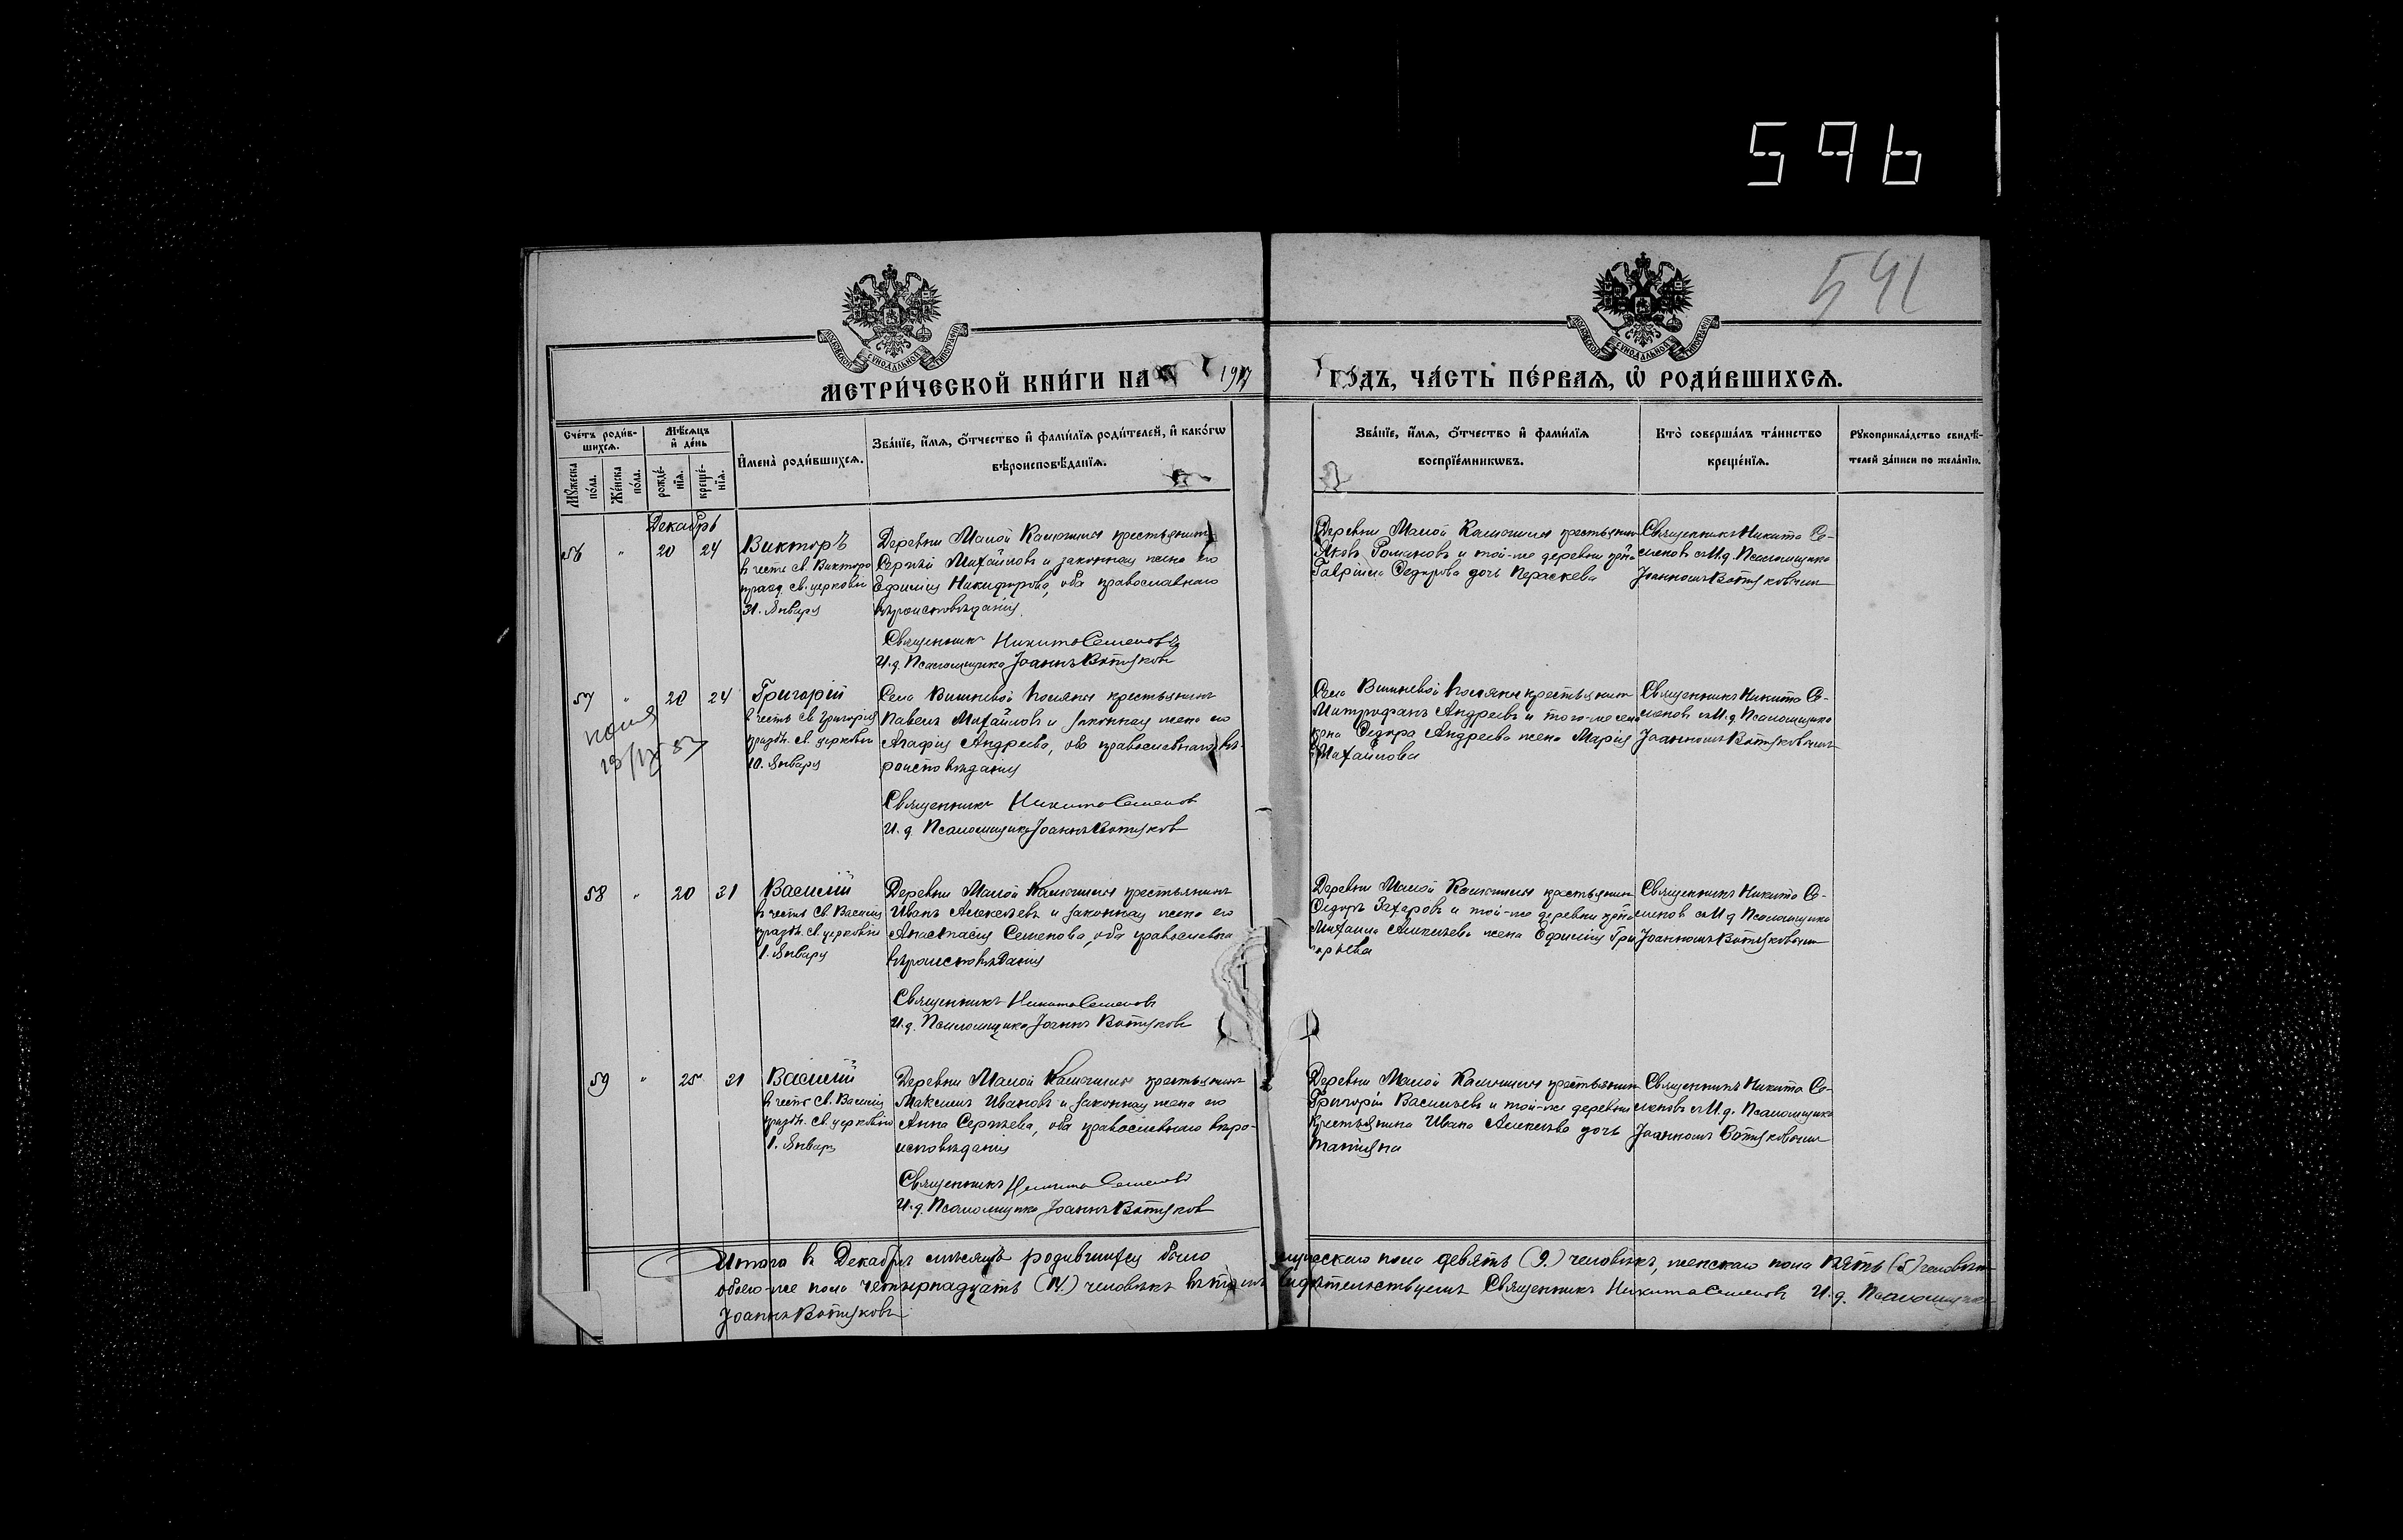 596
541
МОСКОВСКОЙ СѴНОДАЛЬНОЙ ТИПОГРАФІИ
МОСКОВСКОЙ СѴНОДАЛЬНОЙ ТИПОГРАФІИ
МЕТРИ́ЧЕСКОЙ КНИ́ГИ НА 1917
ГО́ДЪ, ЧА́СТЬ ПЕ́РВАѦ, Ѡ҆ РОДИ́ВШИХСѦ.
Сче́тъ роди́в-
шихсѧ.
Мꙋ́жеска по́ла.
Же́нска по́ла.
Мѣ́сѧцъ
и҆ де́нь
рожде́-
нїѧ.
креще́-
нїѧ.
И҆мена̀ роди́вшихсѧ.
Зва́нїе, и҆́мѧ, ѻ҆́тчество и҆ фами́лїѧ роди́телей, и҆ како́гѡ
вѣроисповѣ́данїѧ.
Зва́нїе, и҆́мѧ, ѻ҆́тчество и҆ фами́лїѧ
воспрїе́мникѡвъ.
Кто̀ соверша́лъ та́инство
креще́нїѧ.
Рꙋкоприкла́дство свидѣ́-
телей за́писи по жела́нїю.
Декабрь
56 " 20 24
Викторъ
въ честь св. Виктора
празд. св. церковью
31. Января
Деревни Малой крестьянинъ
Сергѣй Михайловъ и законная жена его
Ефимія Никифорова, оба православнаго
вѣроисповѣданія.
Священникъ Никита Семеновъ
И.д. Псаломщика Іоаннъ
Деревни Малой крестьянинъ
Яковъ Романовъ и той-же деревни крⷭна
Гавріила Федорова дочь Параскева
Священникъ Никита Се-
меновъ съ И.д. Псаломщика
Іоанномъ
57 " 20 24
копія
Григорій
въ честь св Григорія
праздн. св. церковью
10. Января
Села Вишневой Поляны крестьянинъ
Павелъ Михайловъ и законная жена его
Агафія Андреева, оба православнаго вѣ-
роисповѣданія
Священникъ Никита Семеновъ
И.д. Псаломщика Іоаннъ
Села Вишневой Поляны крестьянинъ
Митрофанъ Андреевъ и того-же села
крⷭна Федора Андреева жена Марія
Михайлова
Священникъ Никита Се-
меновъ съ И.д. Псаломщика
Іоанномъ
58 " 20 31
Василій
въ честь св. Василія
праздн. св. церковью
1. Января
Деревни Малой крестьянинъ
Иванъ Алексѣевъ и законная жена его
Анастасія Семенова, оба православнаго
вѣроисповѣданія
Священникъ Никита Семеновъ
И.д. Псаломщика Іоаннъ
Деревни Малой крестьянинъ
Федоръ Захаровъ и той-же деревни крⷭна
Михаила Алексѣева жена Ефимія Гри
горьева
Священникъ Никита Се-
меновъ съ И.д Псаломщика
Іоанномъ
59 " 25 31
Василій
въ честь св. Василія
праздн. св. церковью
1. Январ
Деревни Малой крестьянинъ
Максимъ Ивановъ и законная жена его
Анна Сергѣева, оба православнаго вѣро-
исповѣданія
Священникъ Никита Семеновъ
И.д. Псаломщика Іоаннъ
Деревни Малой крестьянинъ
Григорій Васильевъ и той-же деревни
крестьянина Ивана Алексѣева дочь
Татіяна
Священникъ Никита Се-
меновъ съ И.д. Псаломщика
Іоанномъ
Итого въ Декабрѣ мѣсяцѣ родившихся было мужескаго пола девять (9.) человѣкъ, женскаго пола пять (5) человѣкъ
обоего-же пола четырнадцать (14.) человѣкъ въ томъ свидѣтельствуемъ Священникъ Никита Семеновъ И.д. Псаломщика
Іоаннъ